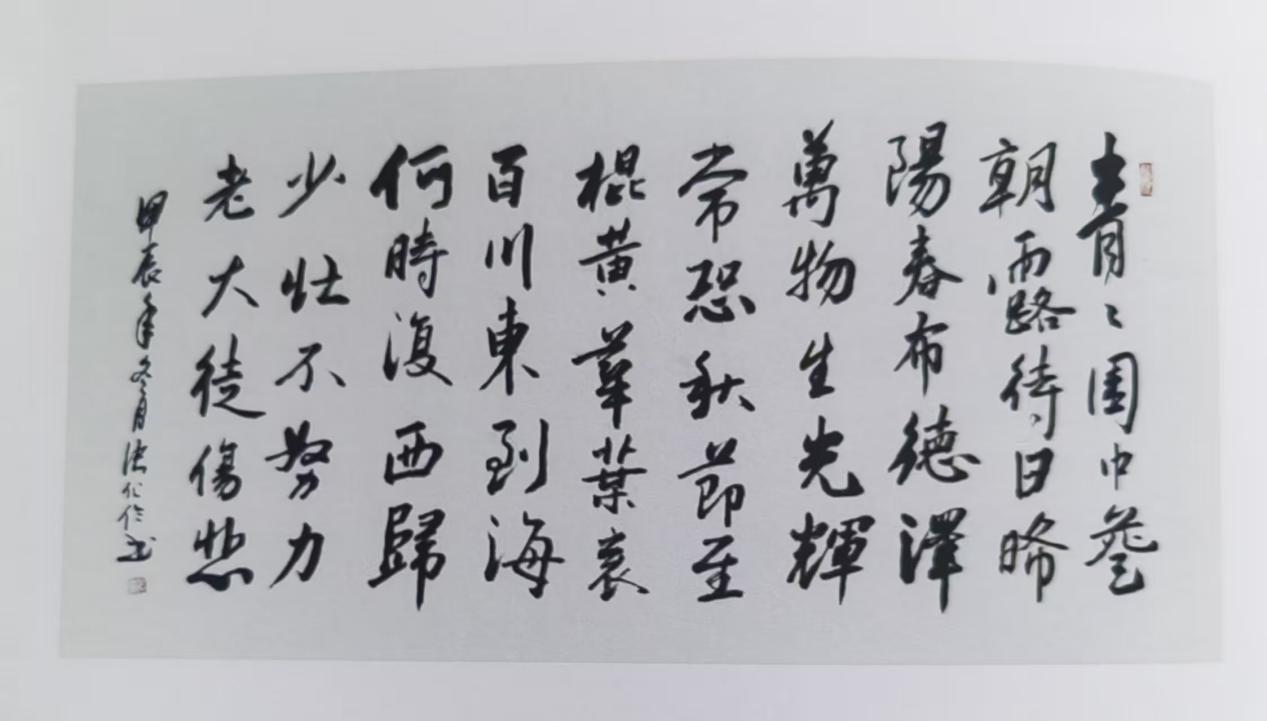 青々園中葵
朝露待日晞
陽春布德澤
萬物生光輝
常恐秋節至
棍黄華葉衰
百川東到海
何時復西歸
少壮不努力
老大徒傷悲
甲辰年冬月